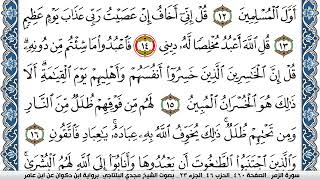 أَوَّلَ الْمُسْلِمِينَ ١٢ قُلْ إِنِّي أَخَافُ إِنْ عَصَيْتُ رَبِّي عَذَابَ يَوْمٍ عَظِيمٍ
١٣ قُلِ اللَّهَ أَعْبُدُ مُخْلِصًا لَهُ دِينِي ١٤ فَاعْبُدُوا مَا شِئْتُمْ مِنْ دُونِهِ
قُلْ إِنَّ الْخَاسِرِينَ الَّذِينَ خَسِرُوا أَنْفُسَهُمْ وَأَهْلِيهِمْ يَوْمَ الْقِيَامَةِ أَلَا
ذَلِكَ هُوَ الْخُسْرَانُ الْمُبِينُ ١٥ لَهُمْ مِنْ فَوْقِهِمْ ظُلَلٌ مِنَ النَّارِ
وَمِنْ تَحْتِهِمْ ظُلَلٌ ذَلِكَ يُخَوِّفُ اللَّهُ بِهِ عِبَادَهُ يَاعِبَادِ فَاتَّقُونِ ١٦
وَالَّذِينَ اجْتَنَبُوا الطَّاغُوتَ أَنْ يَعْبُدُوهَا وَأَنَابُوا إِلَى اللَّهِ لَهُمُ الْبُشْرَى
سورة الزمر . الصفحة ٤٦٠ . الحزب ٤٦ . الجزء ٢٣ . بصوت الشيخ مجدي البلتاجي . برواية ابن ذكوان عن ابن عامر